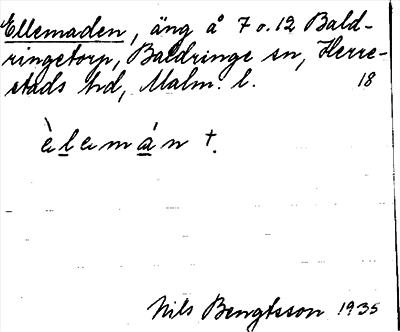 Ellemaden, äng å 7 o. 12 Bald-
ringetorp, Baldringe sn, Herre-
stads hd, Malm. l. 18
èlemán †.
Nils Bengtsson 1935